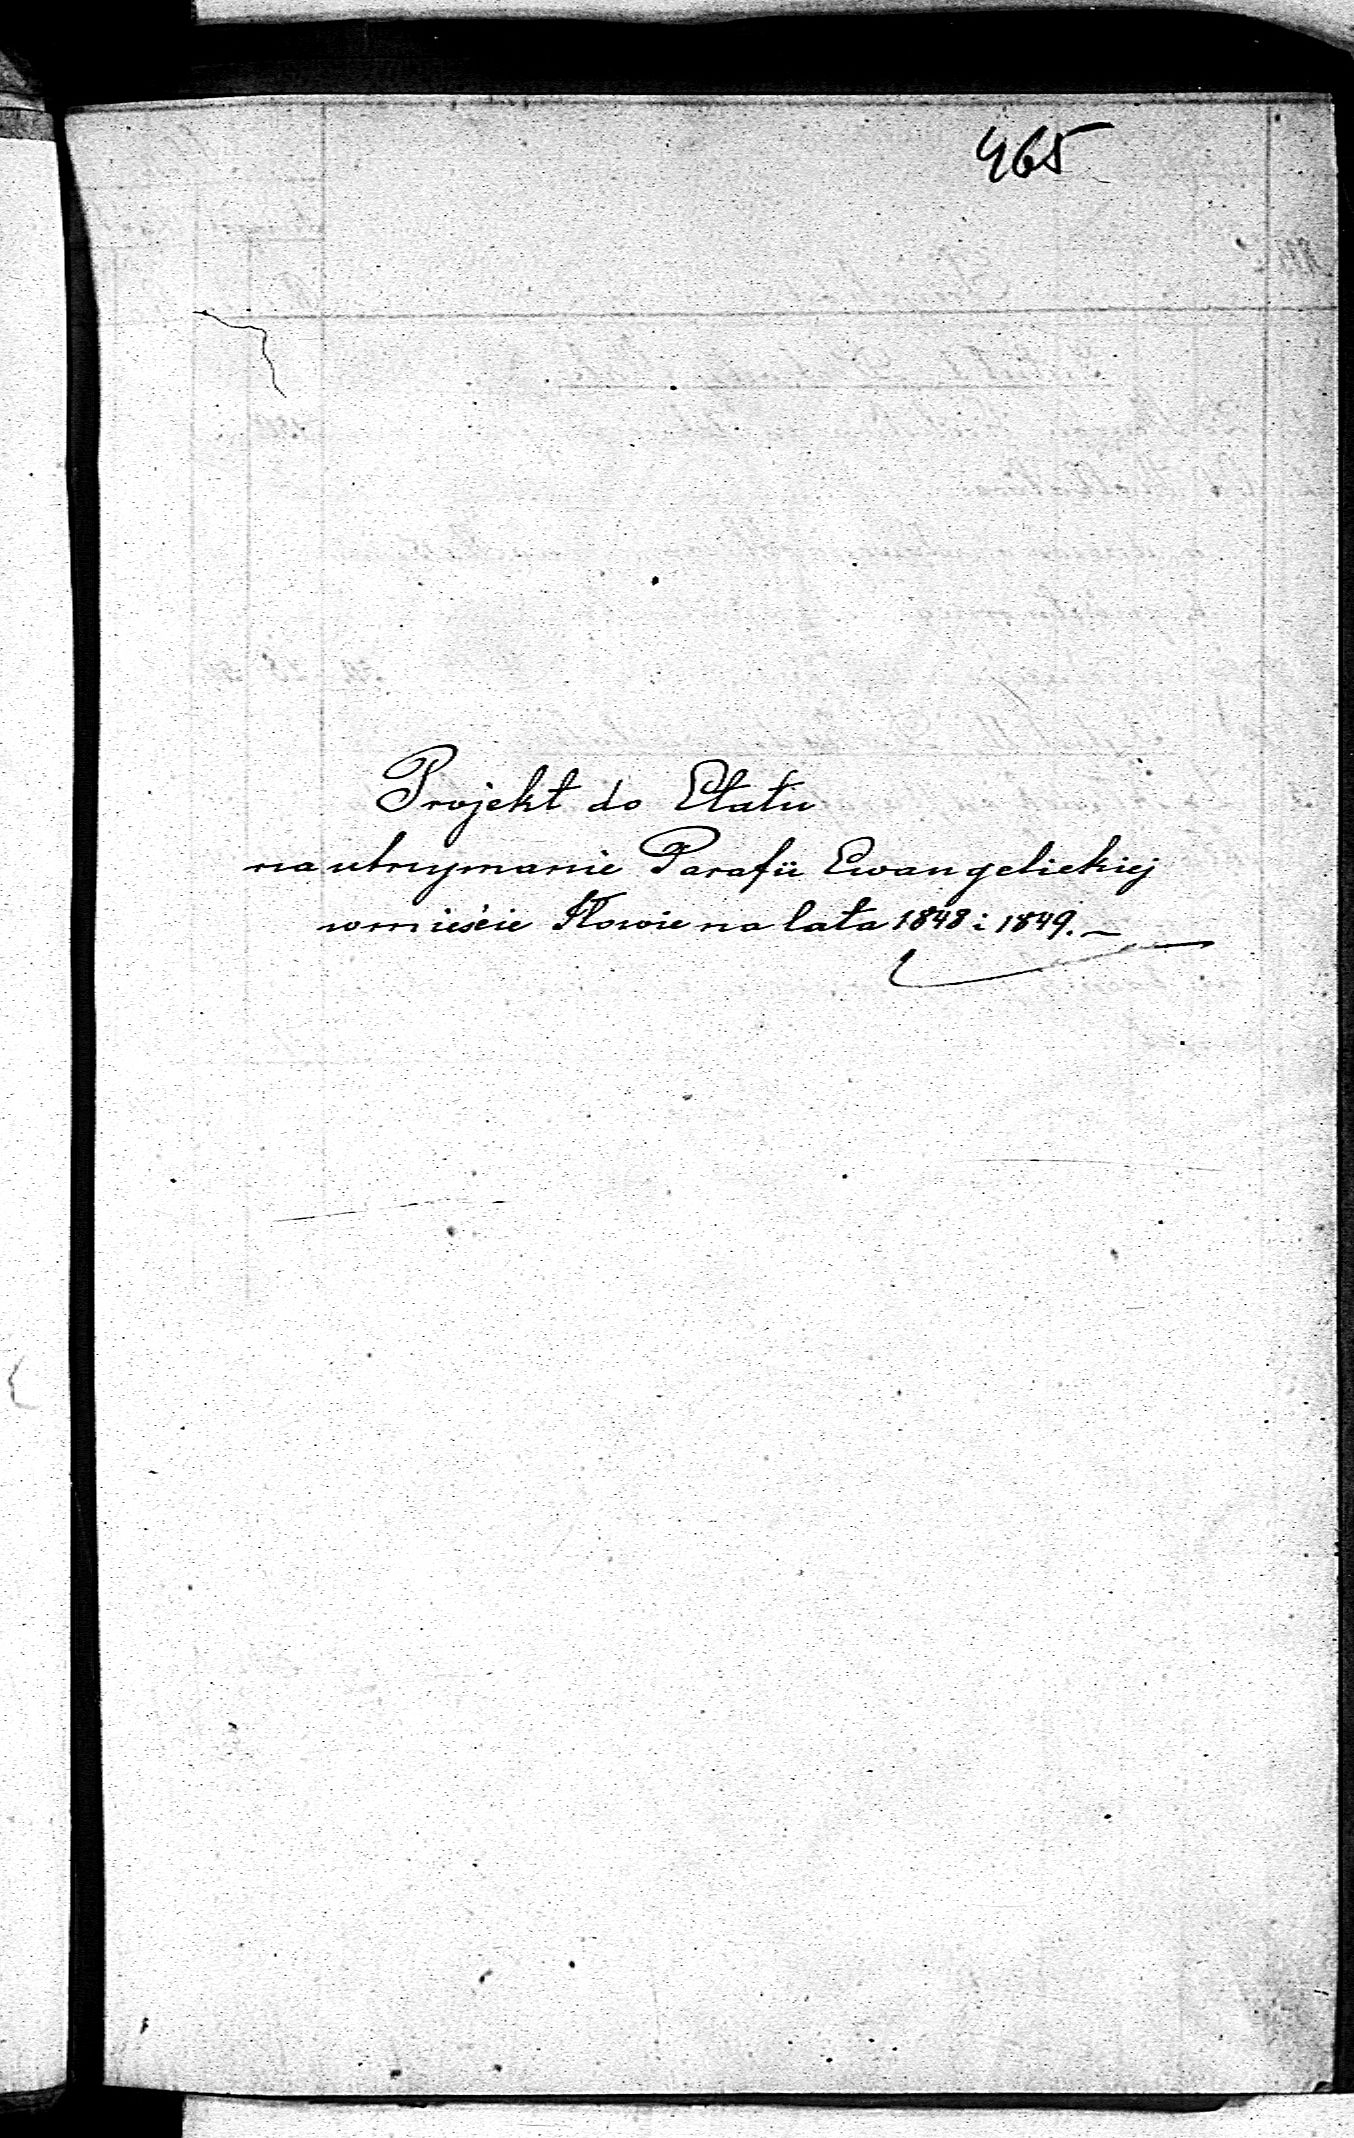 465
Projekt do Etatu
na utrzymanie Parafii Ewangelickiej
w mieście Iłowie na lata 1848 i 1849. –